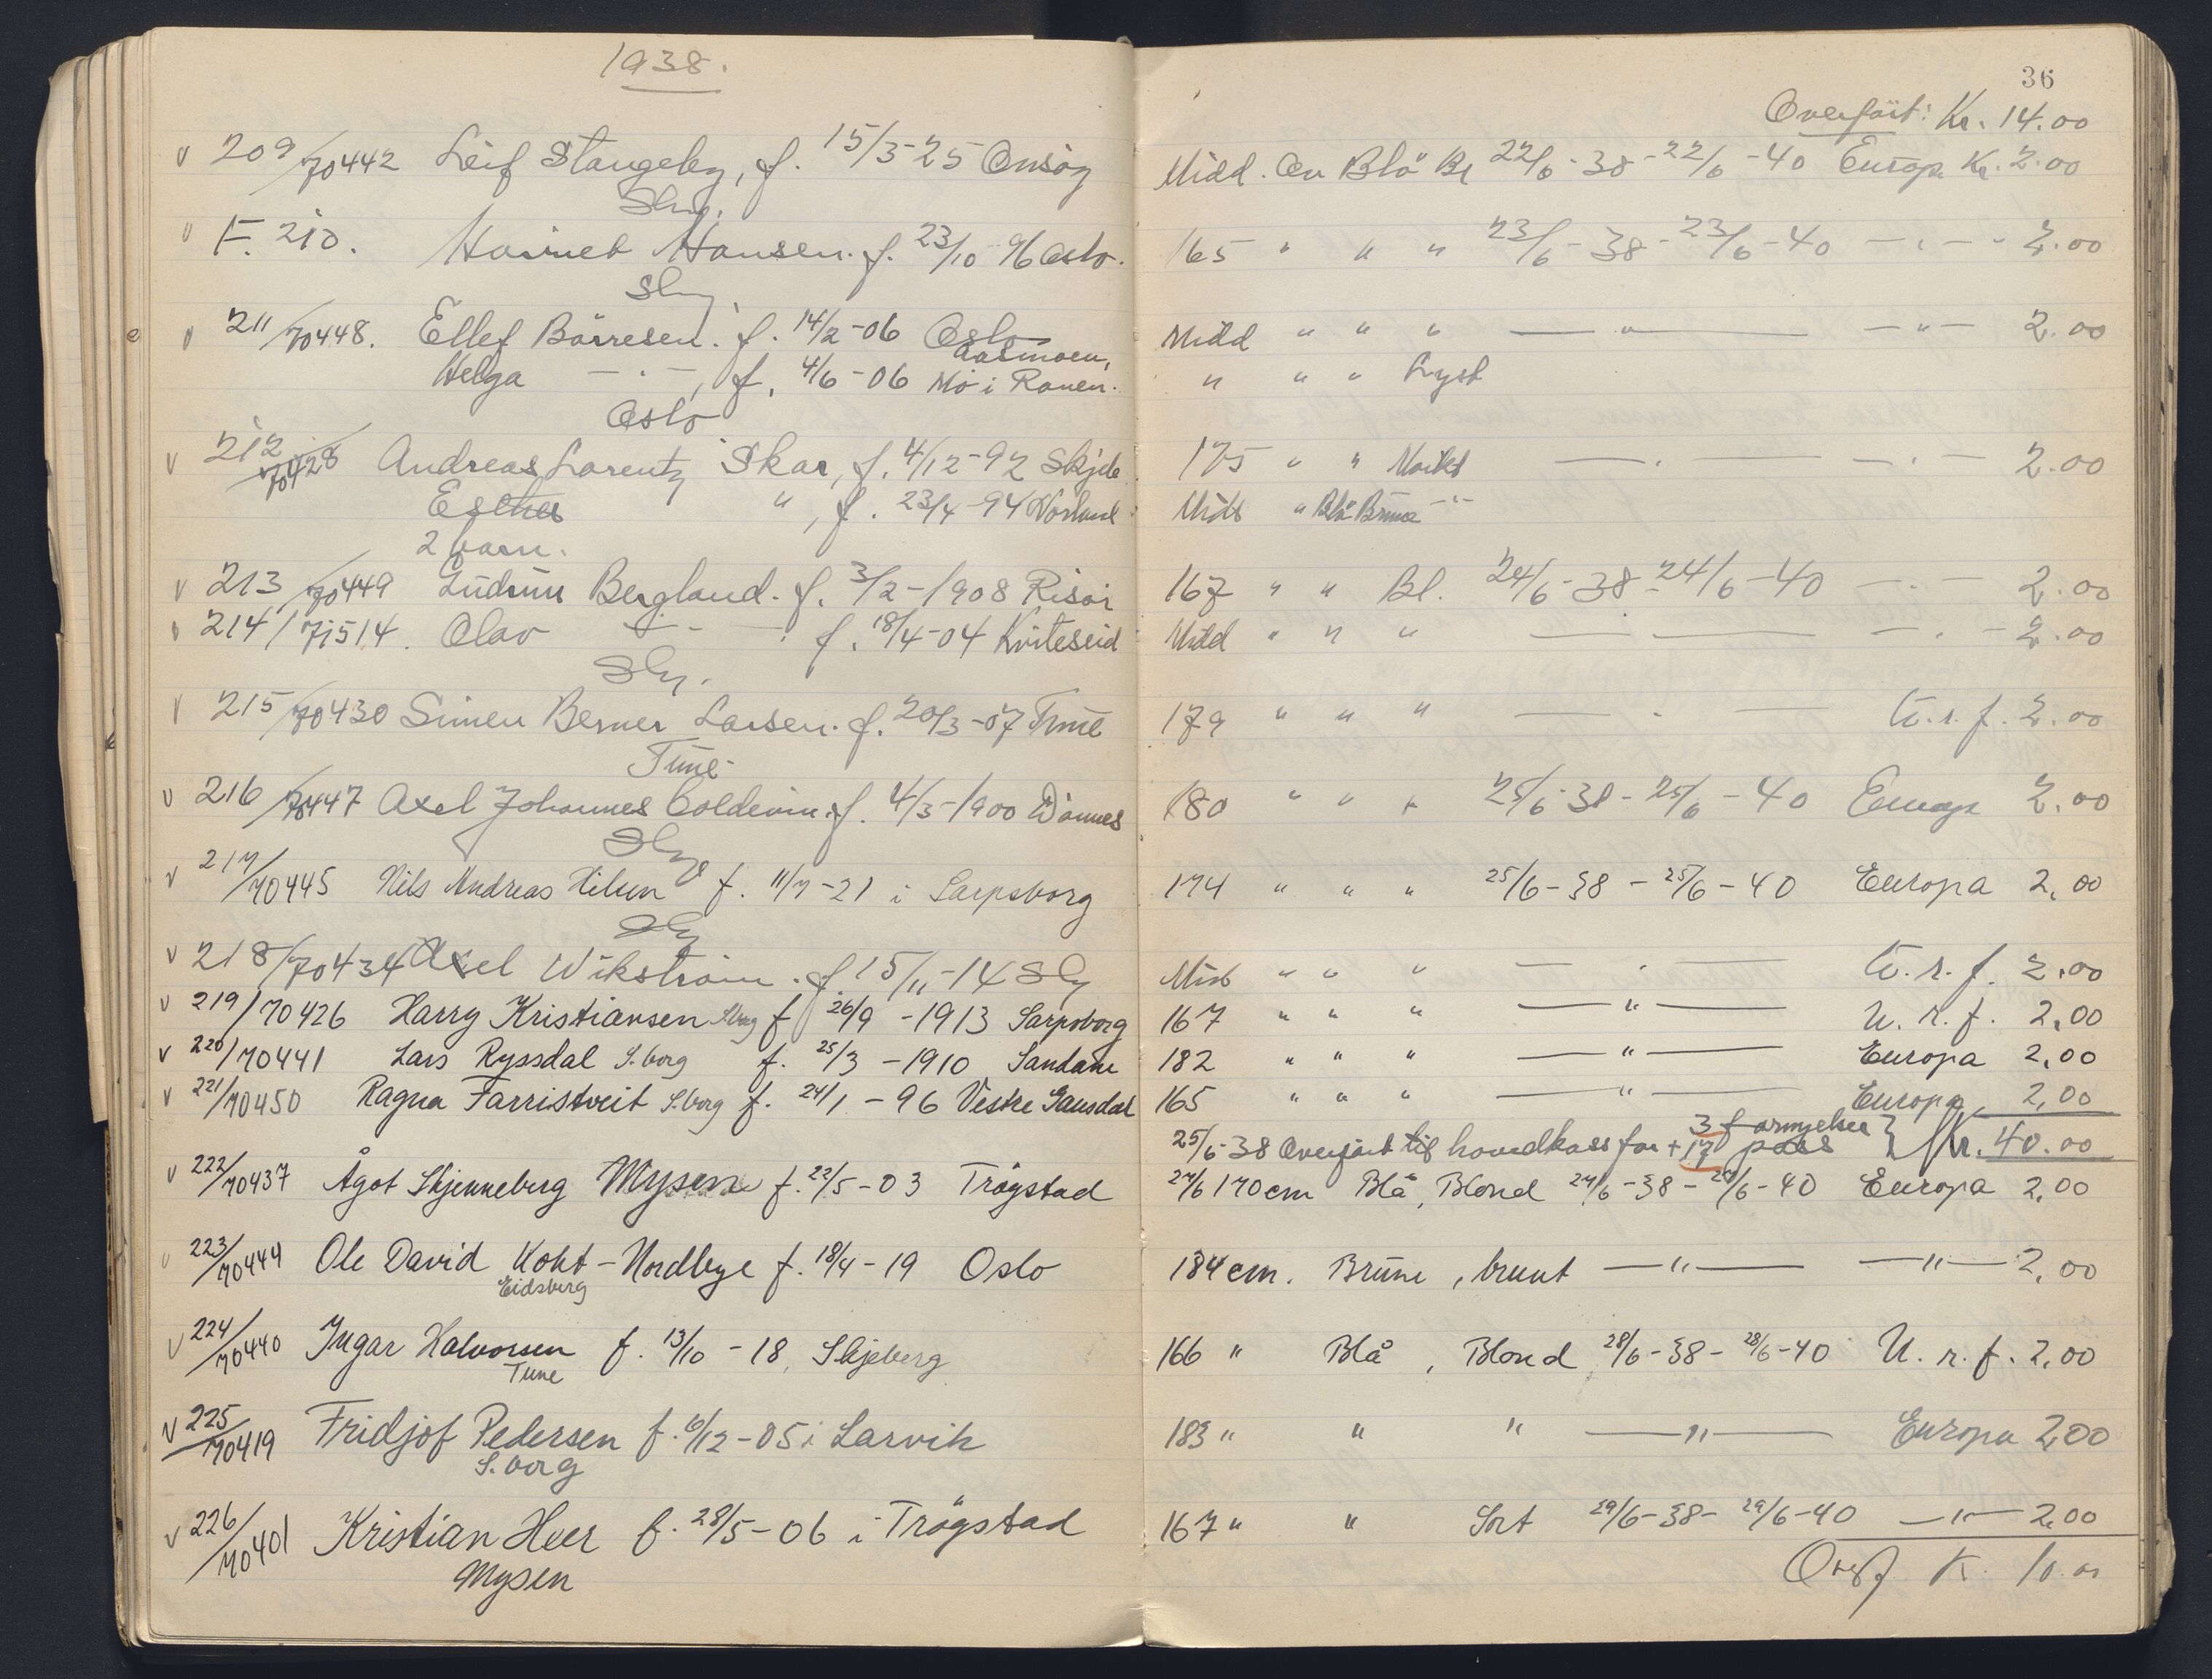 1938.
36
Overført: Kr. 14.00
v 209/70442 Leif Stangeby, f. 15/3-25 Onsøy Midd. Ov Blå Bl 22/6-38-22/6-40 Europ Kr. 2.00
Sbg.
v F. 210. Harriet Hansen. f. 23/10 96 Oslo. 165 " " " 23/6-38-23/6-40 —"— 2.00
Sbg.
v 211/70448. Ellef Börresen. f. 14/2-06 Oslo Midd " " " —"— —"— 2.00
Helga —"—, f. 4/6-06 Mo i Ranen. " " " Lyst
Oslo
v 212/70428 Andreas Lorentz Skar, f. 4/12-92 Skjeb 175 " " Mørkt —"— —"— 2.00
Esther ", f. 23/4-94 Midd " Blå Brune —"—
2 barn.
v 213/70449 Gudrun Bergland. f. 3/2-1908 Risör 167 " " Bl. 24/6-38-24/6-40 —"— 2.00
v 214/71514. Olav —"— f. 18/4-04 Kviteseid Midd " " " —"— —"— 2.00
Sbg.
v 215/70430 Simen Berner Larsen. f. 20/3-07 Tune 179 " " " —"— U.r.f. 2.00
Tune
v 216/70447 Axel Johannes Coldevin. f. 4/3-1900 Dønnes 180 " " " 25/6-38-25/6-40 Europ 2.00
Sbg
v 217/70445 Nils Andreas Nilsen f. 11/7-21 i Sarpsborg 174 " " " 25/6-38-25/6-40 Europa 2,00
Sbg
v 218/70434 Axel Wikström. f. 15/11-14 Sbg Midd " " " —"— U.r.f. 2.00
v 219/70426 Harry Kristiansen Sbrg f 26/9-1913 Sarpsborg 167 " " " —"— U.r.f. 2,00
v 220/70441 Lars Ryssdal S.borg f. 25/3-1910 Sandane 182 " " " —"— Europa 2,00
v 221/70450 Ragna Farristveit S.borg f. 24/1-96 Vestre Gausdal 165 " " " —"— Europa 2,00
3 fornyelser
25/6-38 Overført til hovedkass for + 17 pass } Kr. 40.00
v 222/70437 Ågot Skjenneberg Mysen f. 22/5-03 Trögstad 27/6 170cm Blå, Blond 27/6-38-27/6-40 Europa 2,00
v 223/70444 Ole David Koht-Nordbye f. 18/4-19 Oslo 184cm. Brune, brunt —"— —"— 2,00
Eidsberg
v 224/70440 Ingar Halvorsen f. 13/10-18, Skjeberg 166 " Blå, Blond 28/6-38-28/6-40 U.r.f. 2,00
Tune
v 225/70419 Fridjof Pedersen f. 6/12-05 i Larvik 183 " " " —"— Europa 2,00
S.borg
v 226/70401 Kristian Heer f. 28/5-06 i Trögstad 167 " " Sort 29/6-38-29/6-40 —"— 2,00
Mysen
Overf K. 10.00